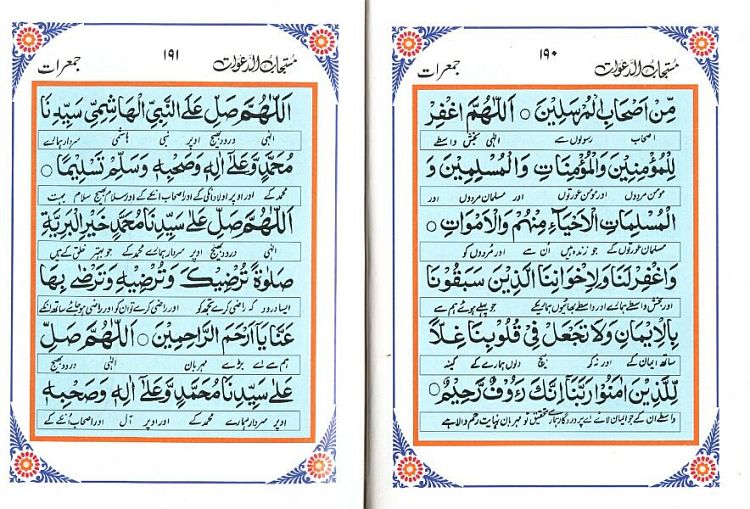 مستجاب الدعوات ١٩٠ جمعرات
مِّنْ اَصْحَابِ الْمُرْسَلِيْنَ ○ اَللّٰهُمَّ اغْفِرْ
اصحاب رسولوں سے الٰہی بخش واسطے
لِلْمُؤْمِنِيْنَ وَالْمُؤْمِنَاتِ وَالْمُسْلِمِيْنَ وَ
مومن مردوں اور مومن عورتوں اور مسلمان مردوں اور
الْمُسْلِمَاتِ الْاَحْيَآءِ مِنْهُمْ وَالْاَمْوَاتِ ○
مسلمان عورتوں کے جو زندہ ہیں اُن سے اور مُردوں کو
وَاغْفِرْ لَنَا وَلِاِخْوَانِنَا الَّذِيْنَ سَبَقُوْنَا
اور بخش واسطے ہمارے اور واسطے بھائیوں ہمارے کے جو پہلے ہوئے ہم سے
بِالْاِيْمَانِ وَلَا تَجْعَلْ فِيْ قُلُوْبِنَا غِلًّا
ساتھ ایمان کے اور نہ کر بیچ دلوں ہمارے کے کینہ
لِّلَّذِيْنَ اٰمَنُوْا رَبَّنَا اِنَّكَ رَءُوْفٌ رَّحِيْمٌ ○
واسطے ان کے جو ایمان لائے اے پروردگار ہمارے تحقیق تو مہربان نہایت رحم والا ہے
مستجاب الدعوات ١٩١ جمعرات
اَللّٰهُمَّ صَلِّ عَلَى النَّبِيِّ الْهَاشِمِيِّ سَيِّدِنَا
الٰہی درود بھیج اوپر نبی ہاشمی سردار ہمارے
مُحَمَّدٍ وَّعَلٰٓى اٰلِهٖ وَصَحْبِهٖ وَسَلِّمْ تَسْلِيْمًا ○
محمد کے اور اوپر اولاد انکی کے اور اصحاب انکے کے اور سلام بھیج سلام بہت
اَللّٰهُمَّ صَلِّ عَلٰى سَيِّدِنَا مُحَمَّدٍ خَيْرِ الْبَرِيَّةِ
الٰہی درود بھیج اوپر سردار ہمارے محمد کے جو بہتر خلق کے ہیں
صَلَاةً تُرْضِيْكَ وَتُرْضِيْهِ وَتَرْضٰى بِهَا
ایسا درود کہ راضی کرے تجھ کو اور راضی کرے اُن کو اور راضی ہو جائے ساتھ انکے
عَنَّا يَا اَرْحَمَ الرَّاحِمِيْنَ ○ اَللّٰهُمَّ صَلِّ
ہم سے اے بڑے مہربان الٰہی درود بھیج
عَلٰى سَيِّدِنَا مُحَمَّدٍ وَّعَلٰٓى اٰلِهٖ وَصَحْبِهٖ
اوپر سردار ہمارے محمد کے اور اوپر آل اور اصحاب اُنکے کے